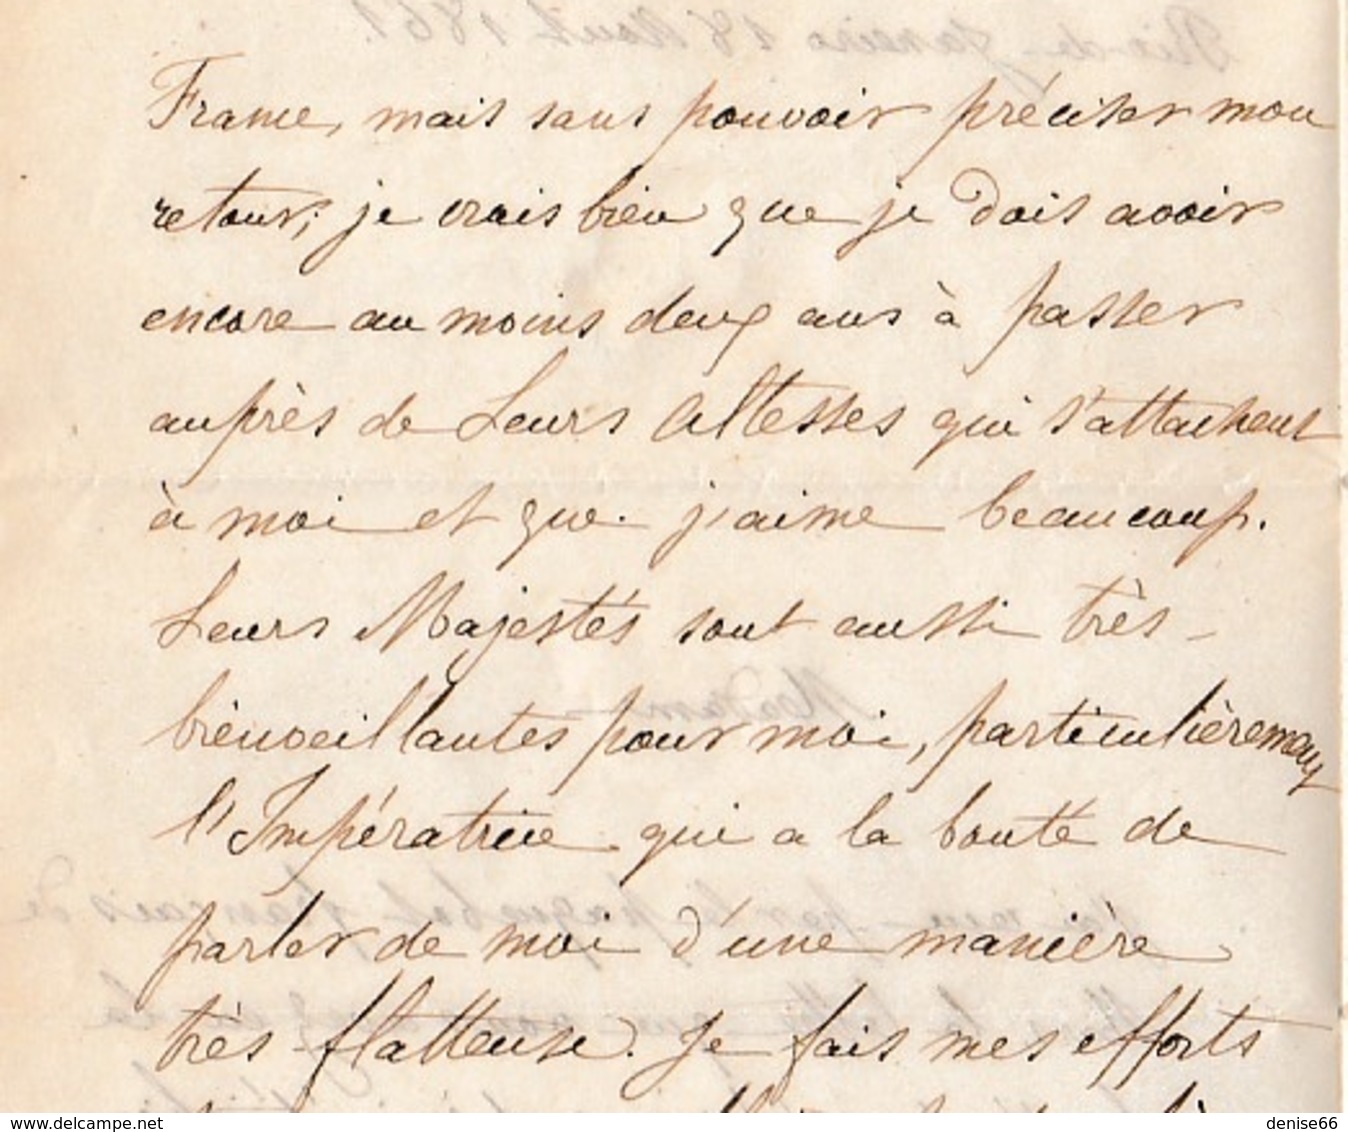 France, mais sans pouvoir préciser mon
retour; je crois bien que je dois avoir
encore au moins deux ans à passer
auprès de Leurs Altesses qui s'attachent
à moi et que j'aime beaucoup.
Leurs Majestés sont aussi très-
bienveillantes pour moi, particulièrement
l'Impératrice qui a la bonté de
parler de moi d'une manière
très flatteuse. Je fais mes efforts
www.delcampe.net
denise66